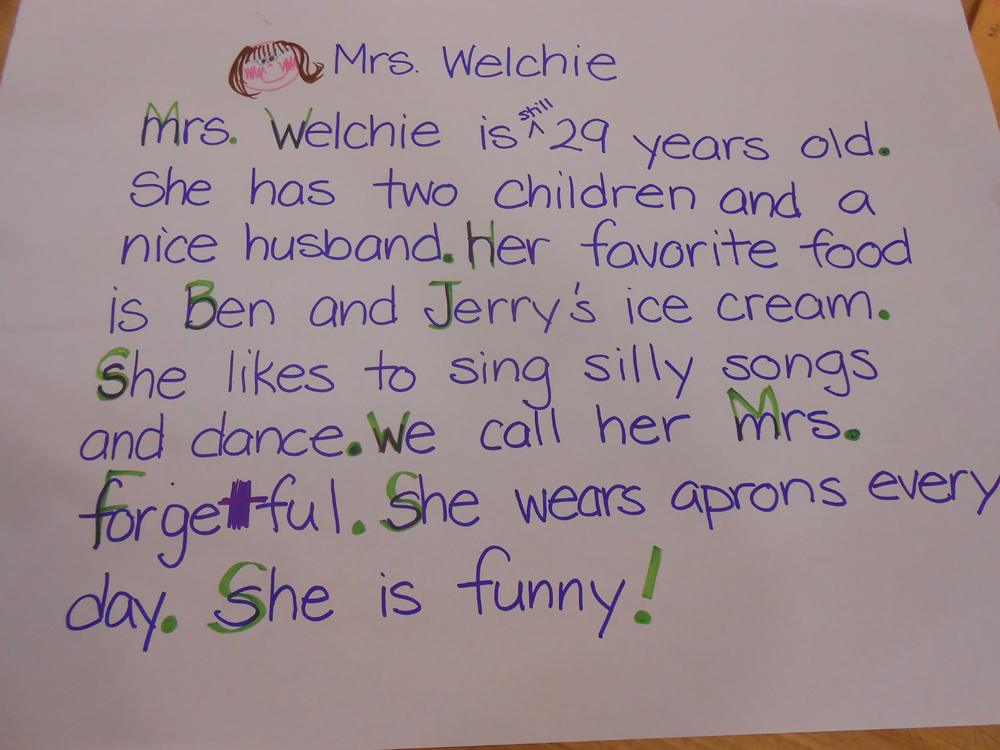 Mrs. Welchie
Mrs. Welchie is still 29 years old.
She has two children and a
nice husband. Her favorite food
is Ben and Jerry's ice cream.
She likes to sing silly songs
and dance. We call her Mrs.
Forgetful. She wears aprons every
day. She is funny!